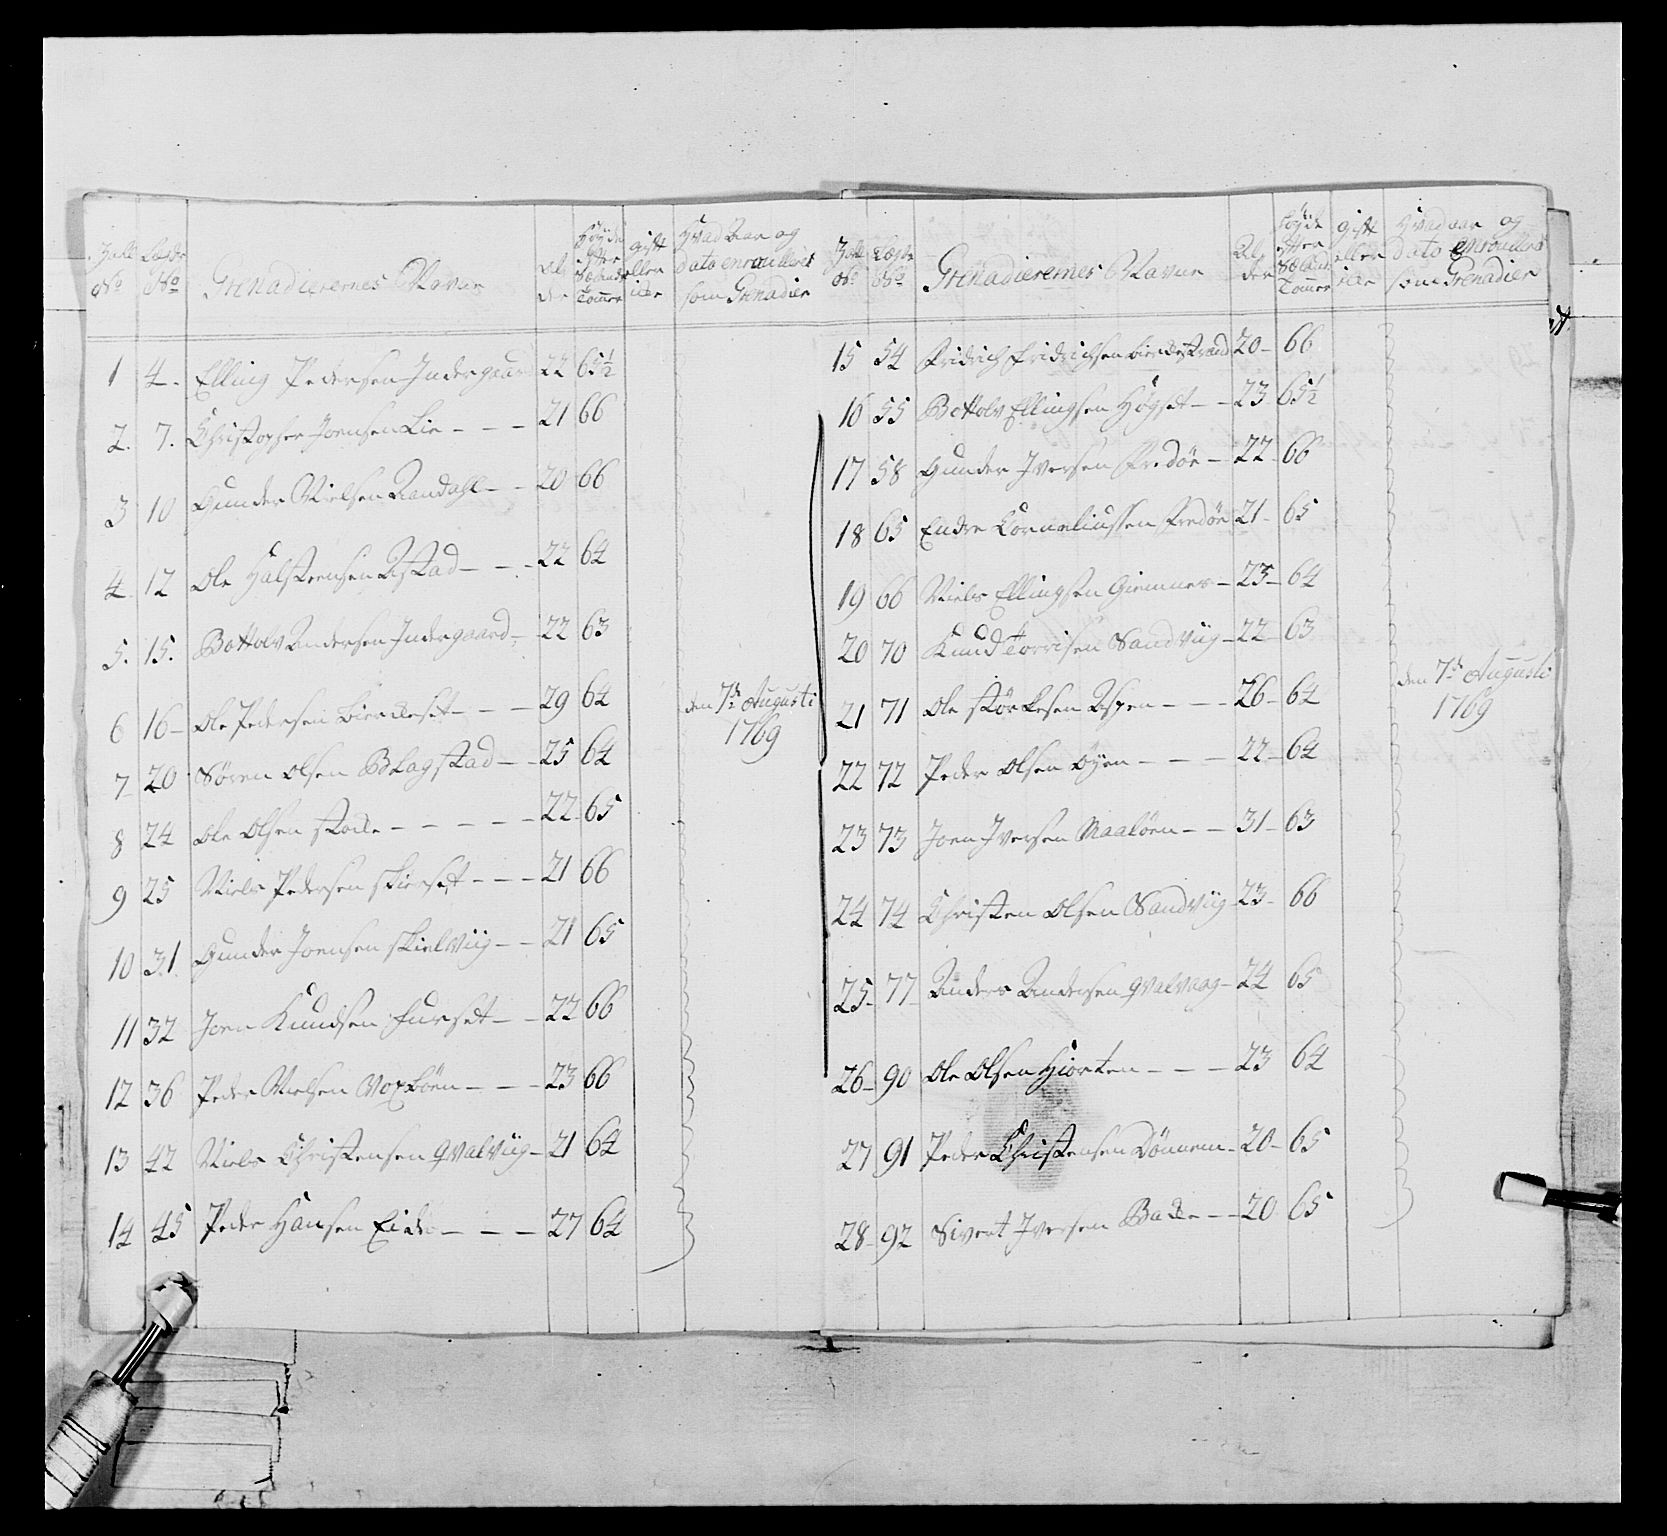 Grenadierernes Navne
Hvad Aar og dato enroulleret som Grenadier
1 4. Elling Pedersen Indergaar 22 65½
2. 7. Christopher Joensen Lie - - - 21 66
3 10 Gunder Nielsen Randahl - - 20 66
4 12 Ole Halsteensen Ustad - - - 22 64
5. 15. Bottolv Andersen Indergaard - 22 63
6 16 - Ole Pedersen - - - 29 64
den 7de Augusti
1769
7 20 Søren Olsen Blagstad - - 25 64
8 24 Ole Olsen - - - - - 22 65
9 25 Niels Pedersen - - - 21 66
10 31 Gunder Joensen Skielviig - - 21 65
11 32 Joen Knudsen Furset - - 22 66
12 36 Peder Nielsen Voxbøen - - - 23 66
13 42 Niels Christensen Qvalviig - 21 64
14 45 Peder Hansen Eide - - - 27 64
Grenadierernes Navne
Al
der
gift
eller
icke
Hvad aar og
dato enroulleret
som Grenadier
15 54 Fridrich Fridrichsen 20 - 66
16 55 Bottolv Ellingsen Høgset - - 23 65½
17 58 Gunder Iversen Fredøe - 22 - 66
18 65 Endre Corneliussen Fredøe 21 - 65
19 66 Niels Ellingsen Giemnes - 23 - 64
20 70 Knud Torrisen Sandviig - 22 - 63
21 71 Ole Størkesen Aspen - - - 26 - 64
den 7de Augusti
1769
22 72 Peder Olsen Øyen - - - 22 - 64
23 73 Joen Iversen Maaløen - - 31 - 63
24 74 Christen Olsen Sandviig 23 - 66
25 - 77 - Anders Andersen Qvalvaag - 24 65
26 - 90 Ole Olsen Hiorten - - - 23 64
27 91 Peder Christensen Dønnem - 20 - 65
28 - 92 Sivert Iversen - - 20 65